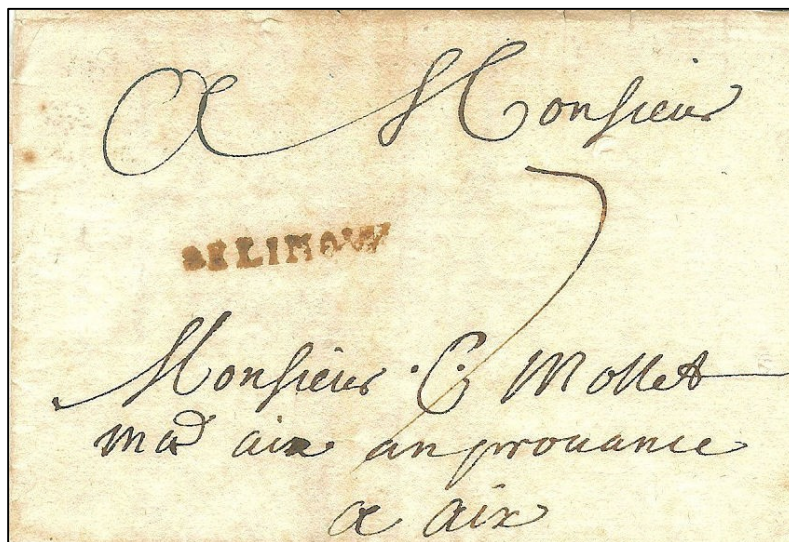 A Monsieur
7
DE LIMOUX
Monsieur .C. Mollet
md aix an prouance
a aix